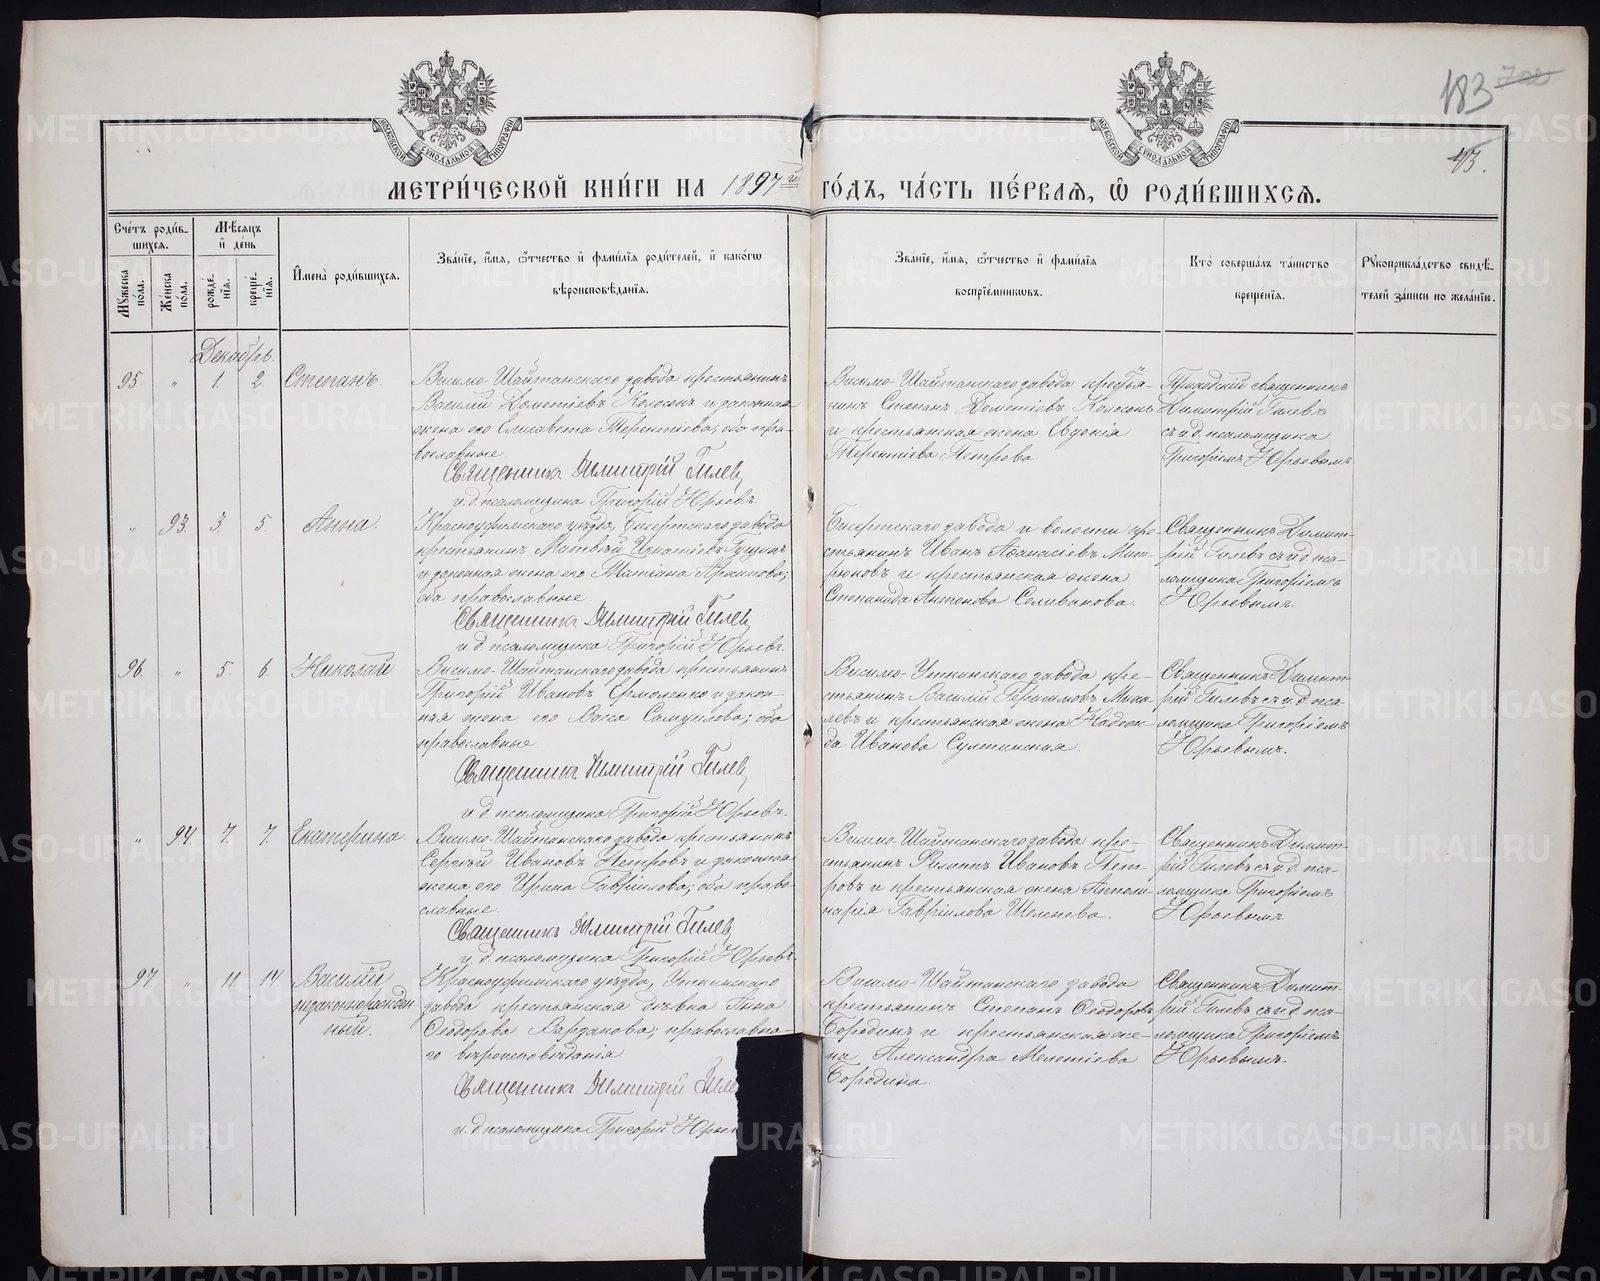 183 700
43.
МОСКОВСКОЙ СѴНОДАЛЬНОЙ ТИПОГРАФІИ
МОСКОВСКОЙ СѴНОДАЛЬНОЙ ТИПОГРАФІИ
МЕТРИ́ЧЕСКОЙ КНИ́ГИ НА 1897й ГО́ДЪ, ЧА́СТЬ ПЕ́РВАЯ, Ѿ РОДИ́ВШИХСЯ.
Сче́тъ роди́в-
шихся.
Мѣ́сяцъ
и҆ де́нь
Мꙋ́жеска
по́ла.
Же́нска
по́ла.
рожде́-
нїя.
креще́-
нїя.
И҆мена̀ роди́вшихся.
Зва́нїе, и҆́мя, ѻ҆́тчество и҆ фами́лїя роди́телей, и҆ како́гѡ
вѣроисповѣ́данїя.
Зва́нїе, и҆́мя, ѻ҆́тчество и҆ фами́лїя
воспрїе́мниковъ.
Кто̀ соверша́лъ та́инство
креще́нїя.
Рꙋкоприкла́дство свидѣ́-
телей за́писи по жела́нїю.
Декабрь.
95. " 1. 2. Степанъ.
Висимо-Шайтанскаго завода крестьянинъ
Василій Дометіевъ Колосокъ и законная
жена его Елисавета Терентіева; оба пра-
вославные.
Священникъ Димитрій Гилев
и. д. псаломщика Григорій Юрьевъ.
Висимо-Шайтанскаго завода крестья-
нинъ Степанъ Дометіевъ Колосокъ
и крестьянская жена Евдокія
Терентіева Петрова.
Приходскій священникъ
Димитрій Гилевъ
съ и. д. псаломщика
Григоріемъ Юрьевымъ.
" 93. 3. 5. Анна.
Красноуфимскаго уѣзда, Бисертскаго завода
крестьянинъ Матвѣй Игнатіевъ Гущинъ
и законная жена его Татіана Архипова;
оба православные.
Священникъ Димитрій Гилев
и. д. псаломщика Григорій Юрьевъ.
Бисертскаго завода и волости кре-
стьянинъ Иванъ Аѳанасіевъ Мит-
рюковъ и крестьянская жена
Степанида Антонова Селиванова.
Священникъ Димит-
рій Гилевъ съ и. д. пса-
ломщика Григоріемъ
Юрьевымъ.
96. " 5. 6. Николай
Висимо-Шайтанскаго завода крестьянинъ
Григорій Ивановъ Ермоленко и закон-
ная жена его Васса Самуилова; оба
православные.
Священникъ Димитрій Гилев
и. д. псаломщика Григорій Юрьевъ.
Висимо-Уткинскаго завода кре-
стьянинъ Василій Миха-
левъ и крестьянская жена Надеж-
да Иванова
Священникъ Димит-
рій Гилевъ съ и. д. пса-
ломщика Григоріемъ
Юрьевымъ.
" 94. 7. 7. Екатерина
Висимо-Шайтанскаго завода крестьянинъ
Сергѣй Ивановъ Петровъ и законная
жена его Ирина Гавріилова; оба право-
славные.
Священникъ Димитрій Гилев
и. д. псаломщика Григорій Юрьевъ.
Висимо-Шайтанскаго завода кре-
стьянинъ Филиппъ Ивановъ Пет-
ровъ и крестьянская жена Аполли-
нарія Гавріилова Шеленева.
Священникъ Димит-
рій Гилевъ съ и. д. пса-
ломщика Григоріемъ
Юрьевымъ
97. " 11. 14. Василій
незаконнорожден-
ный.
Красноуфимскаго уѣзда, Уткинскаго
завода крестьянская дѣвка Анна
Ѳеодорова православна-
го вѣроисповѣданія
Священникъ Димитрій Гиле
и. д. псаломщика Григорій Юрье
Висимо-Шайтанскаго завода
крестьянинъ Степанъ Ѳеодоровъ
Бородинъ и крестьянская же-
на Александра Мелетіева
Бородина.
Священникъ Димит-
рій Гилевъ съ и. д. пса-
ломщика Григоріемъ
Юрьевымъ.
METRIKI.GASO-URAL.RU